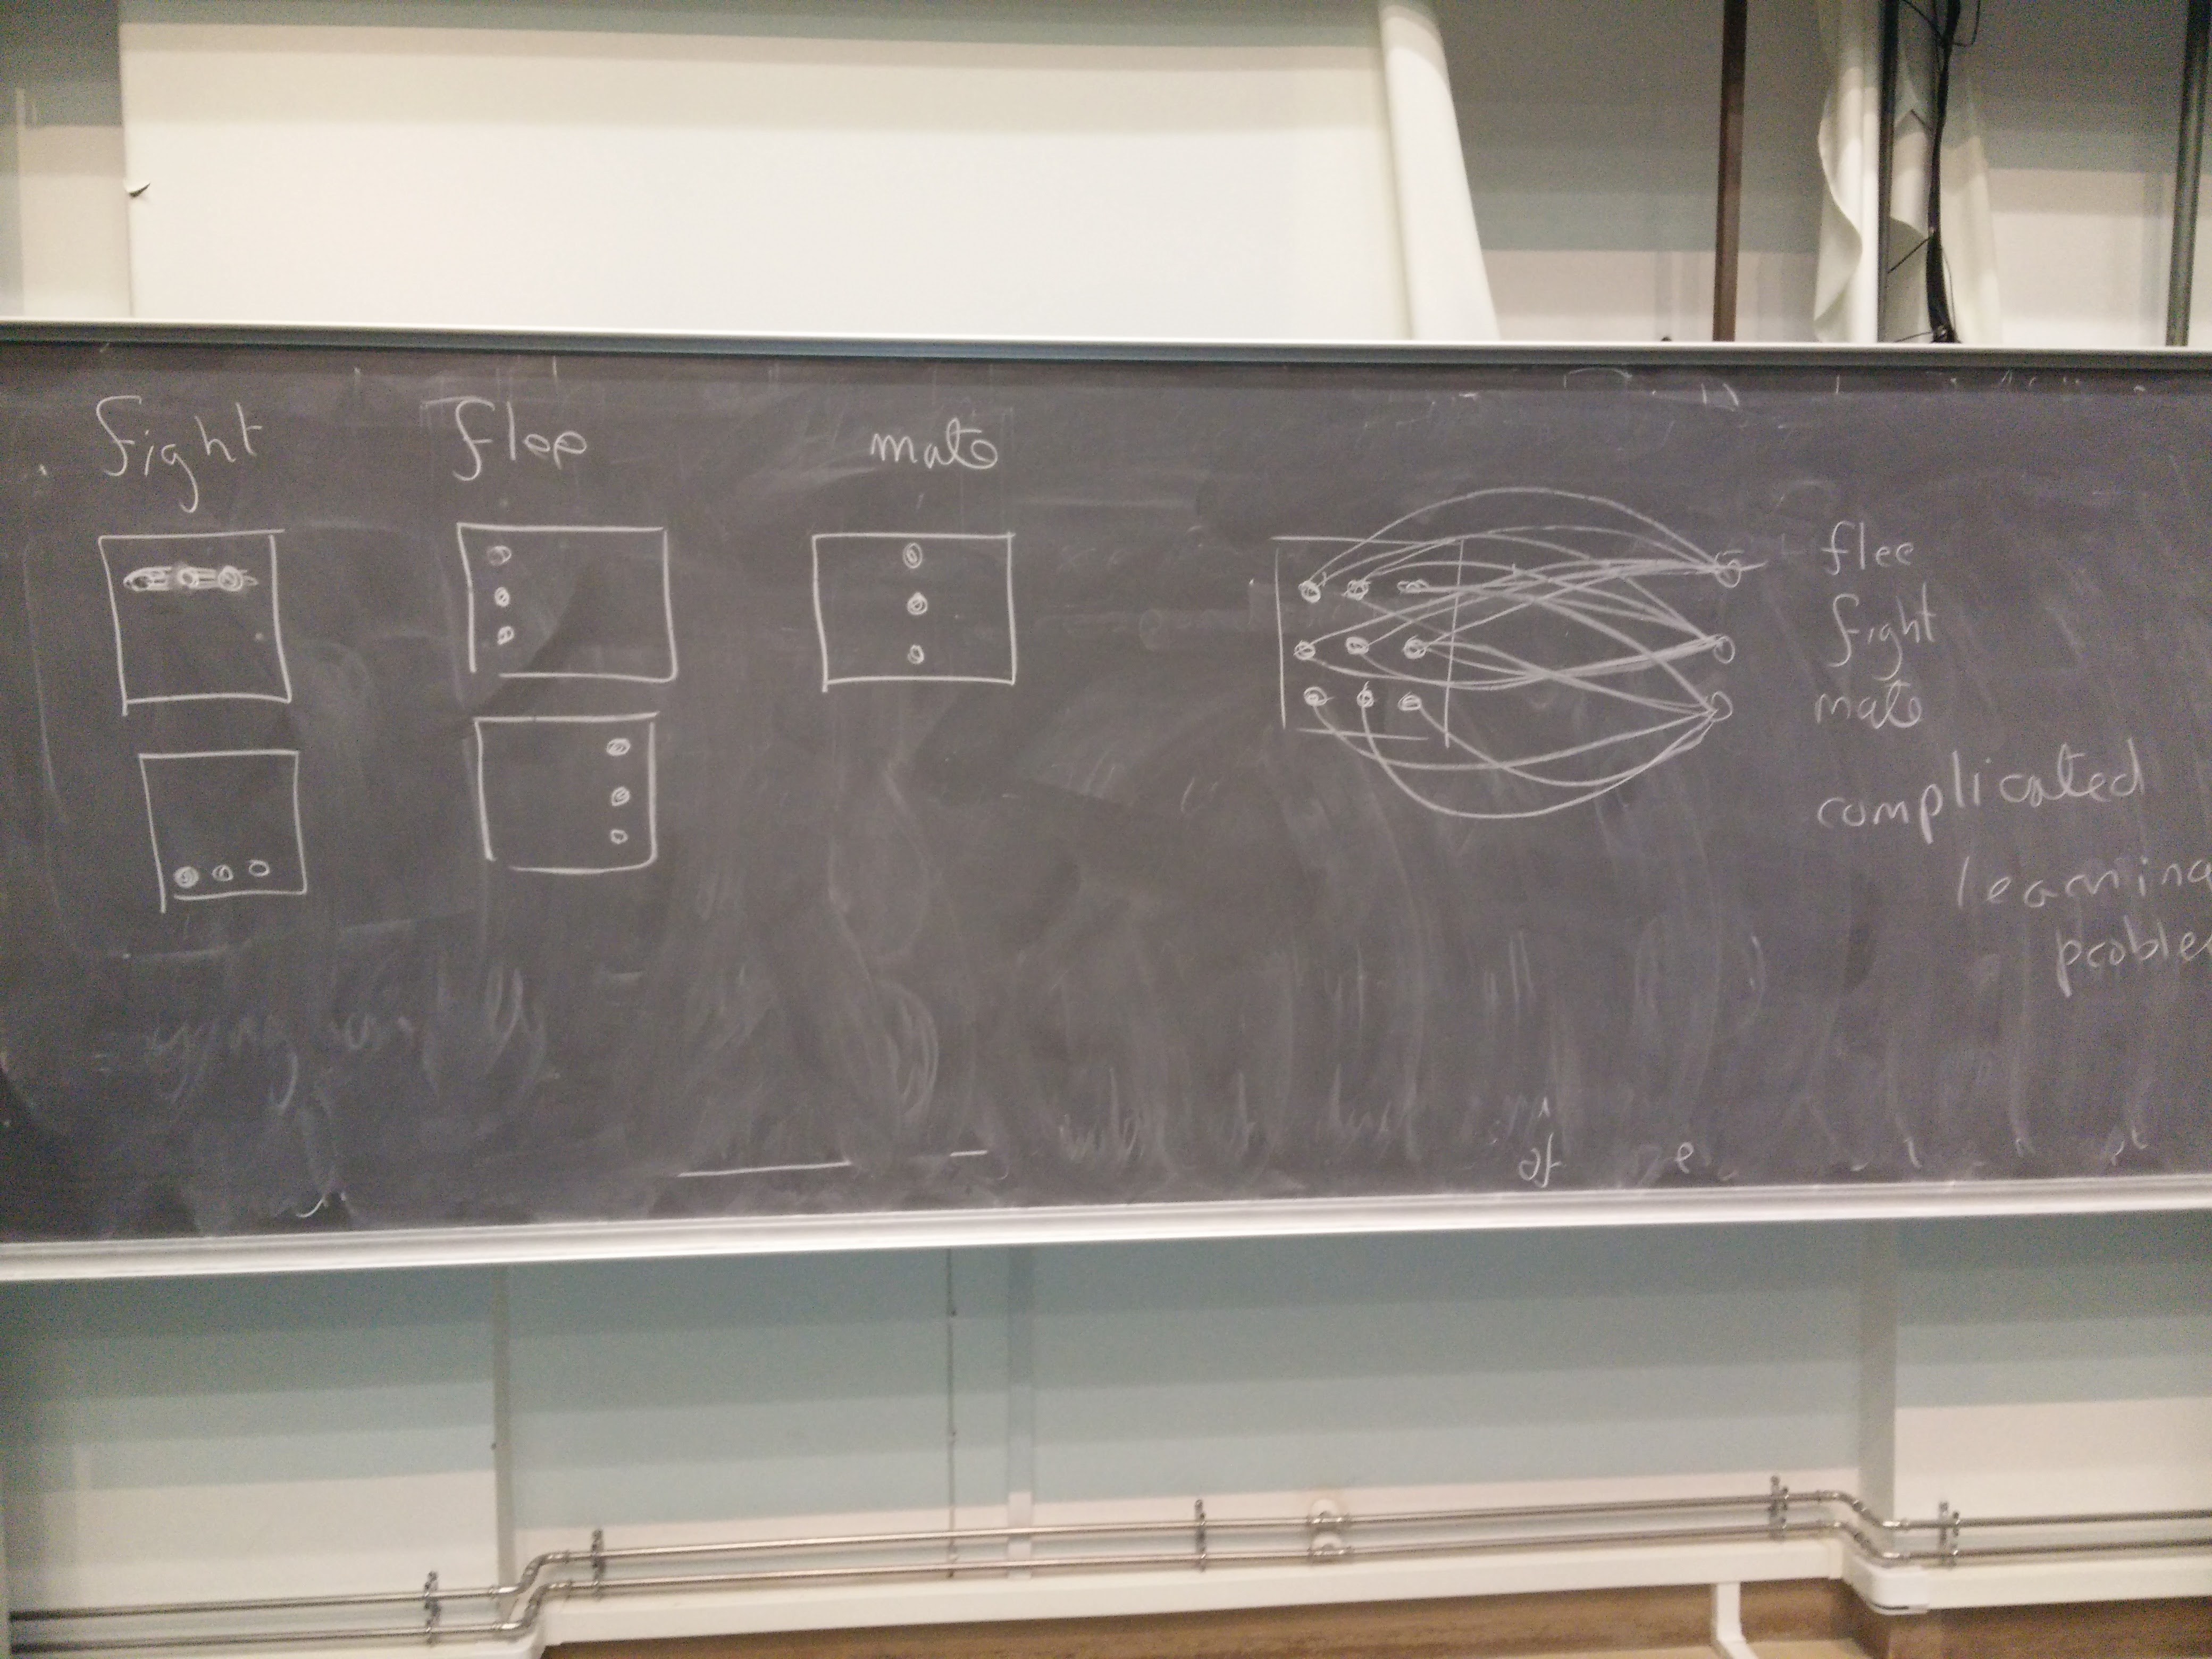 fight flee mate
flee
fight
mate
complicated
learning
proble